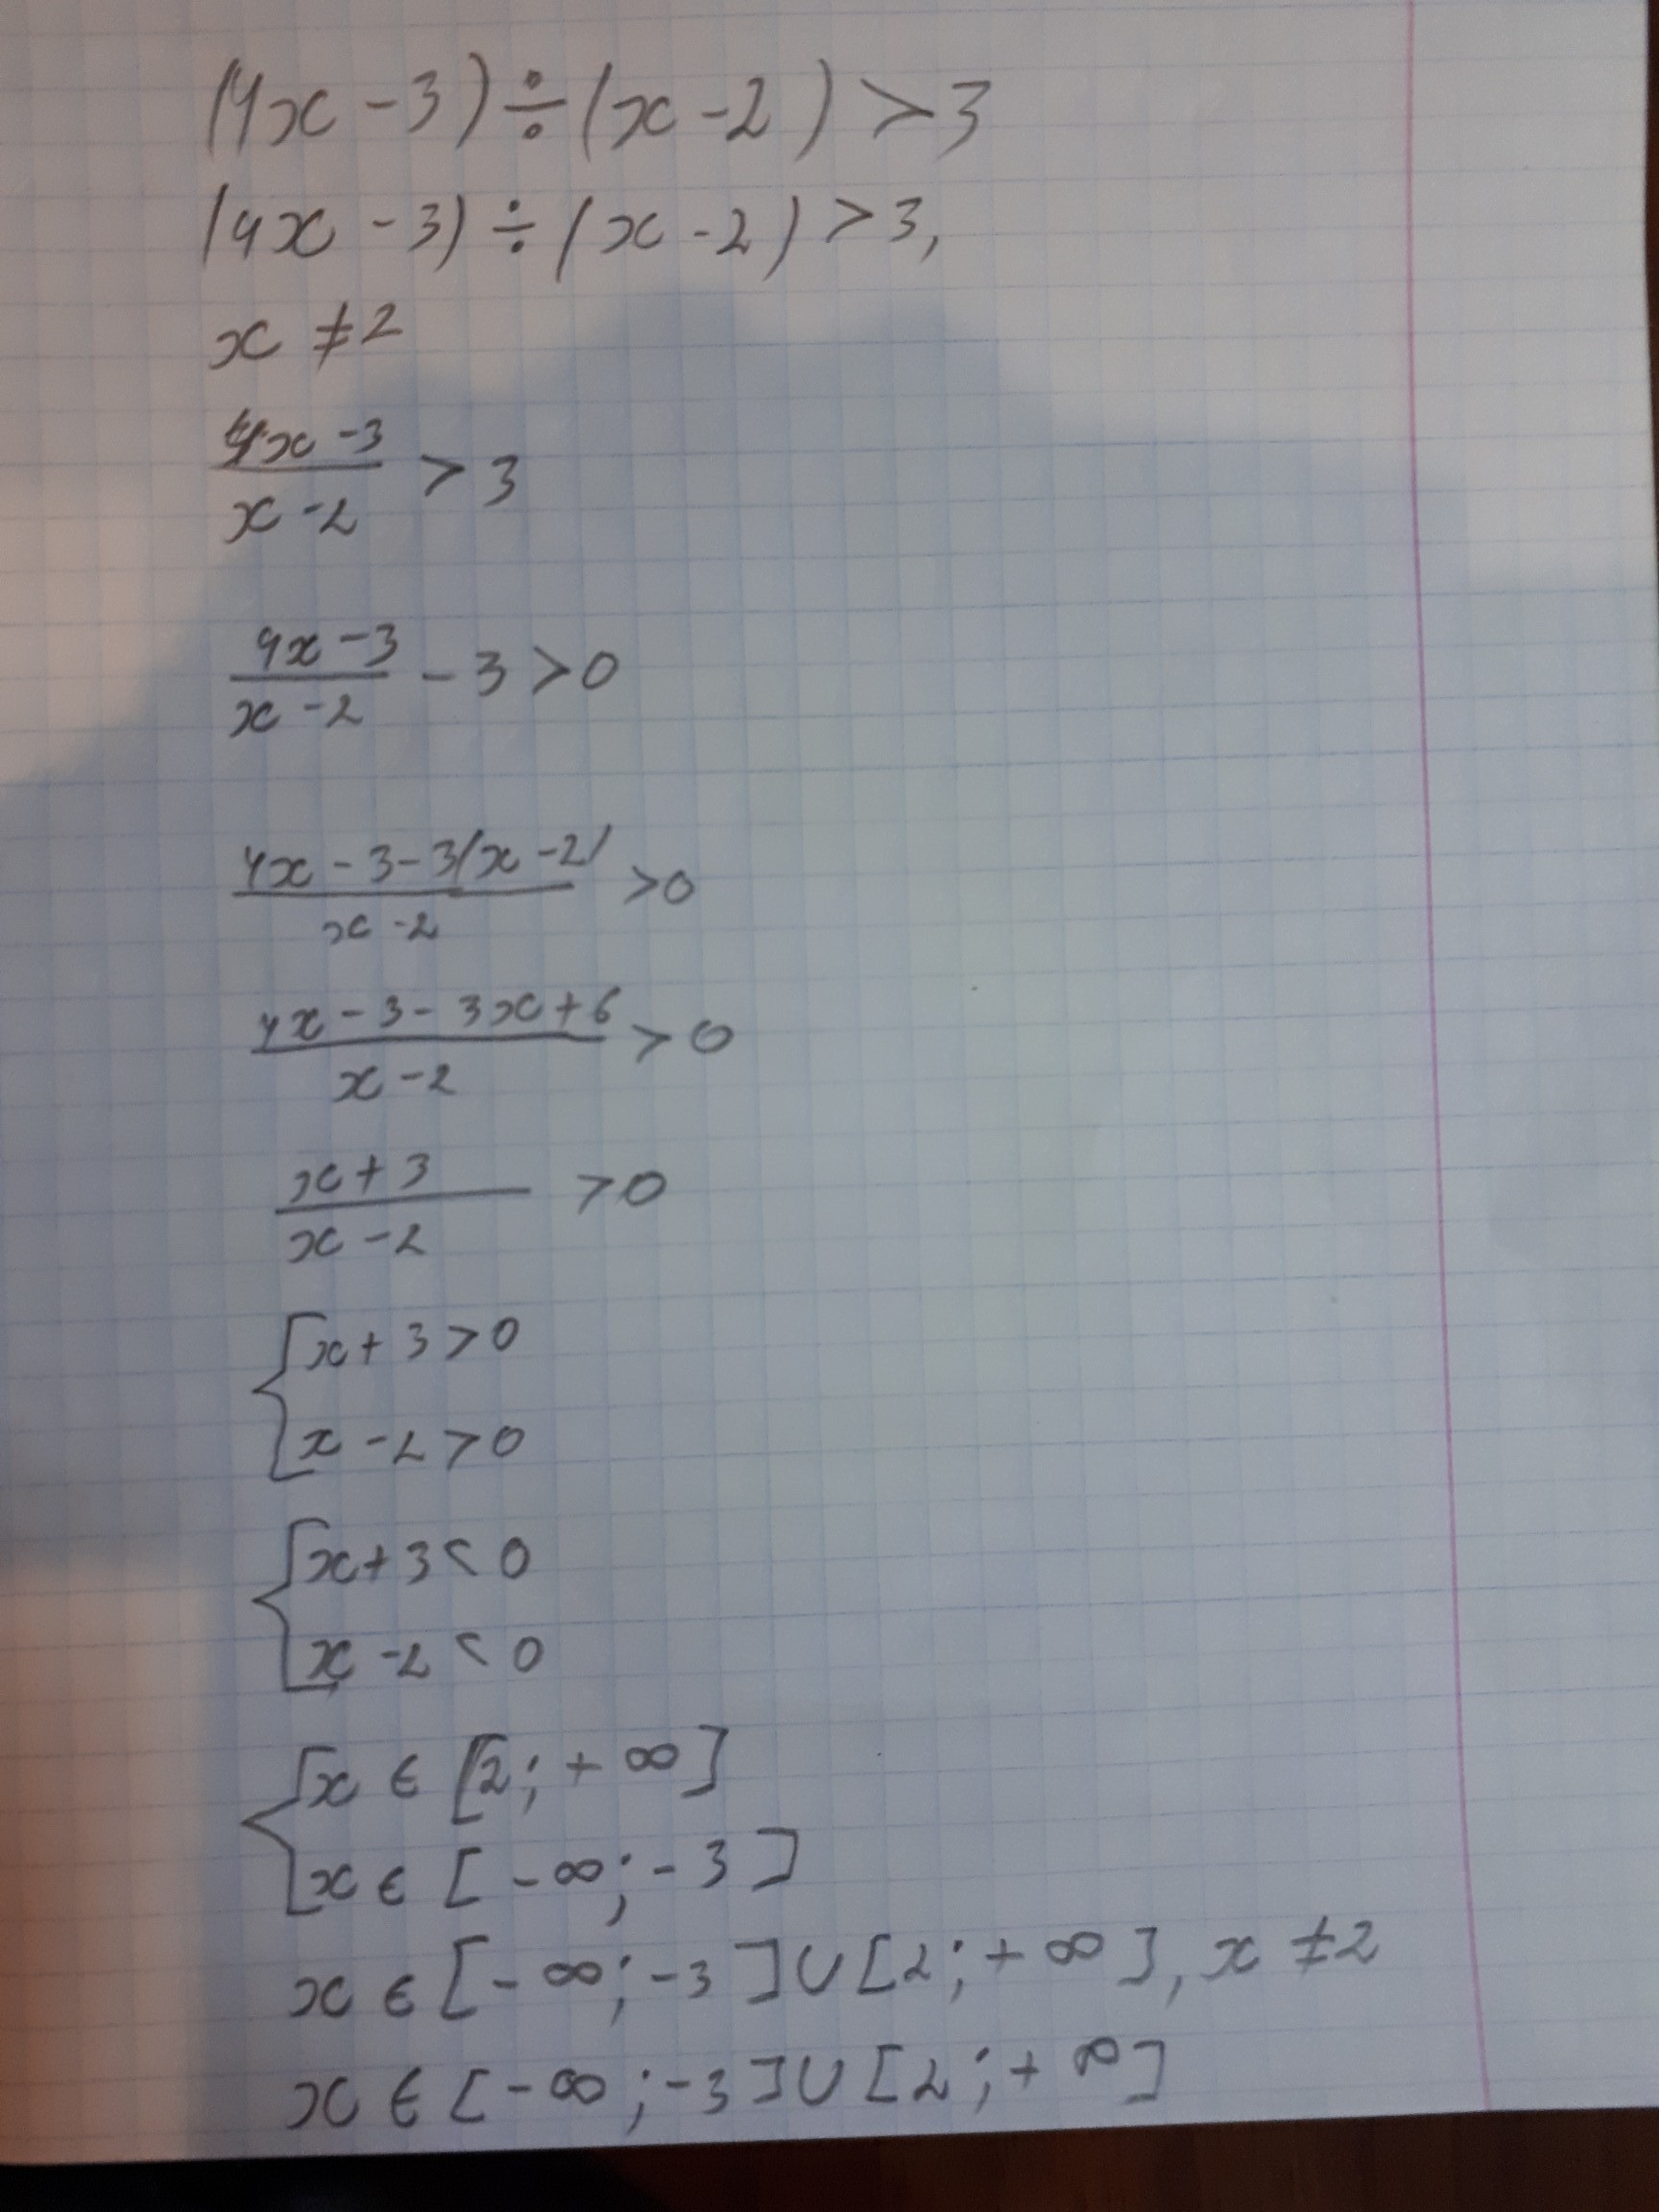 (4x - 3) ÷ (x - 2) > 3
(4x - 3) ÷ (x - 2) > 3,
x ≠ 2
\frac{4x - 3}{x - 2} > 3
\frac{4x - 3}{x - 2} - 3 > 0
\frac{4x - 3 - 3(x - 2)}{x - 2} > 0
\frac{4x - 3 - 3x + 6}{x - 2} > 0
\frac{x + 3}{x - 2} > 0
{[x + 3 > 0
x - 2 > 0
{[x + 3 < 0
x - 2 < 0
{[x ∈ [2; + ∞]
x ∈ [- ∞; - 3]
x ∈ [- ∞; -3] ∪ [2; + ∞], x ≠ 2
x ∈ [- ∞; -3] ∪ [2; + ∞]